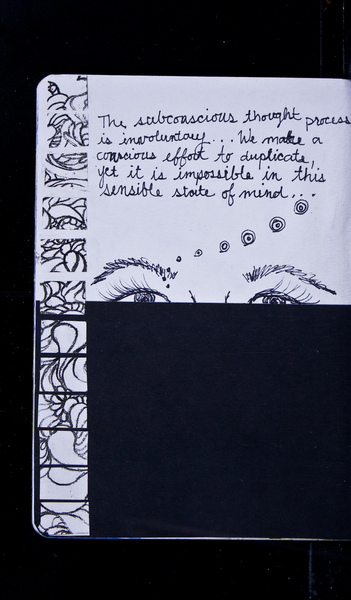 The subconscious thought process
is involuntary... We make a
conscious effort to duplicate,
yet it is impossible in this
sensible state of mind...